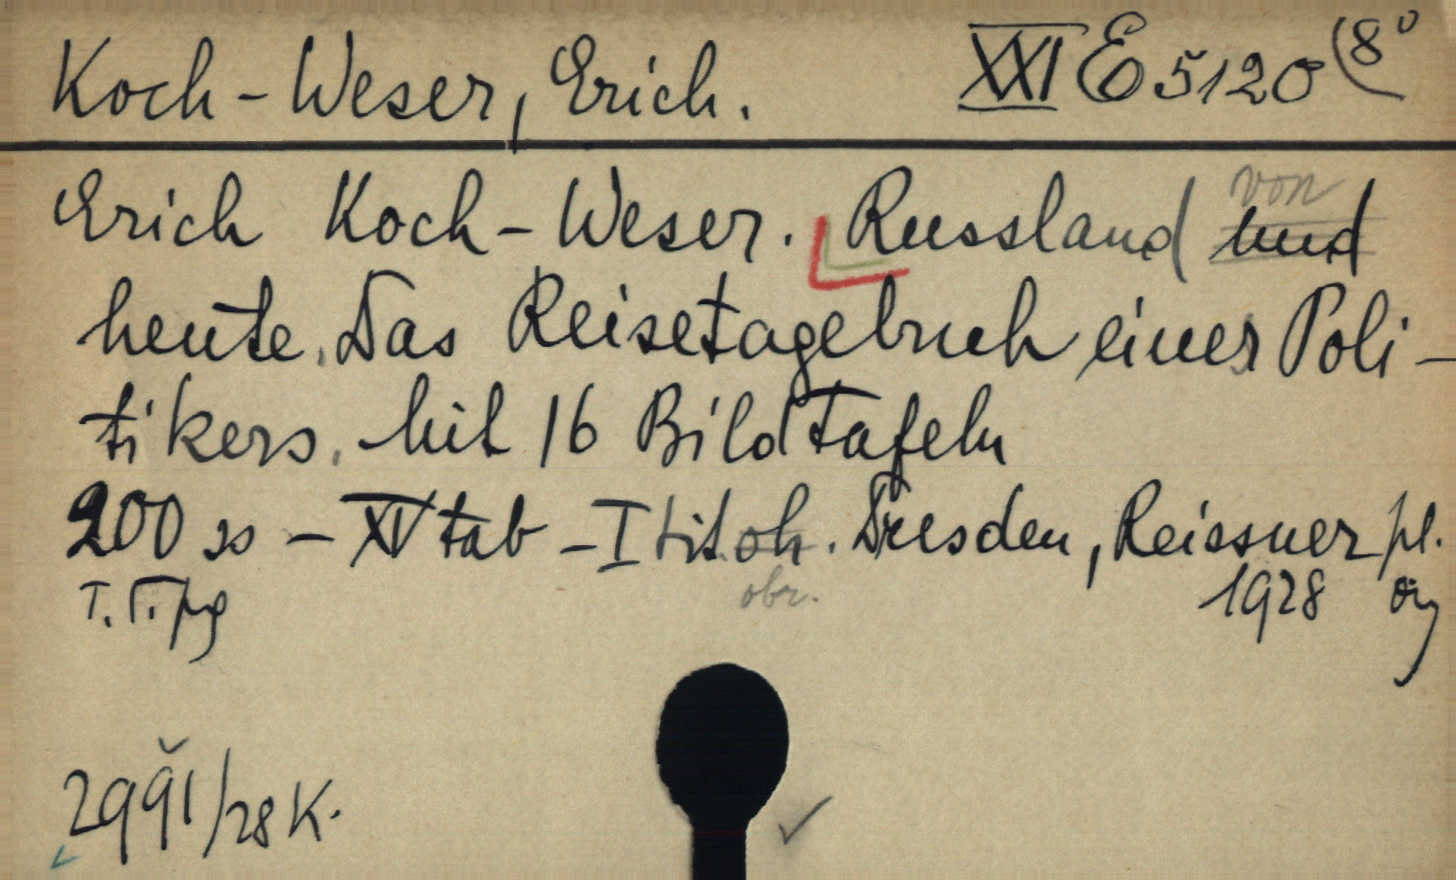 Koch-Weser, Erich. XXI E 5120 (8°
Erich Koch-Weser. Russland von und
heute. Das Reisetagebuch eines Poli-
tikers. Mit 16 Bildtafeln
200 ss - XV tab - I tit. oh. Dresden, Reissner pl.
obr. 1928
2991/28 K.